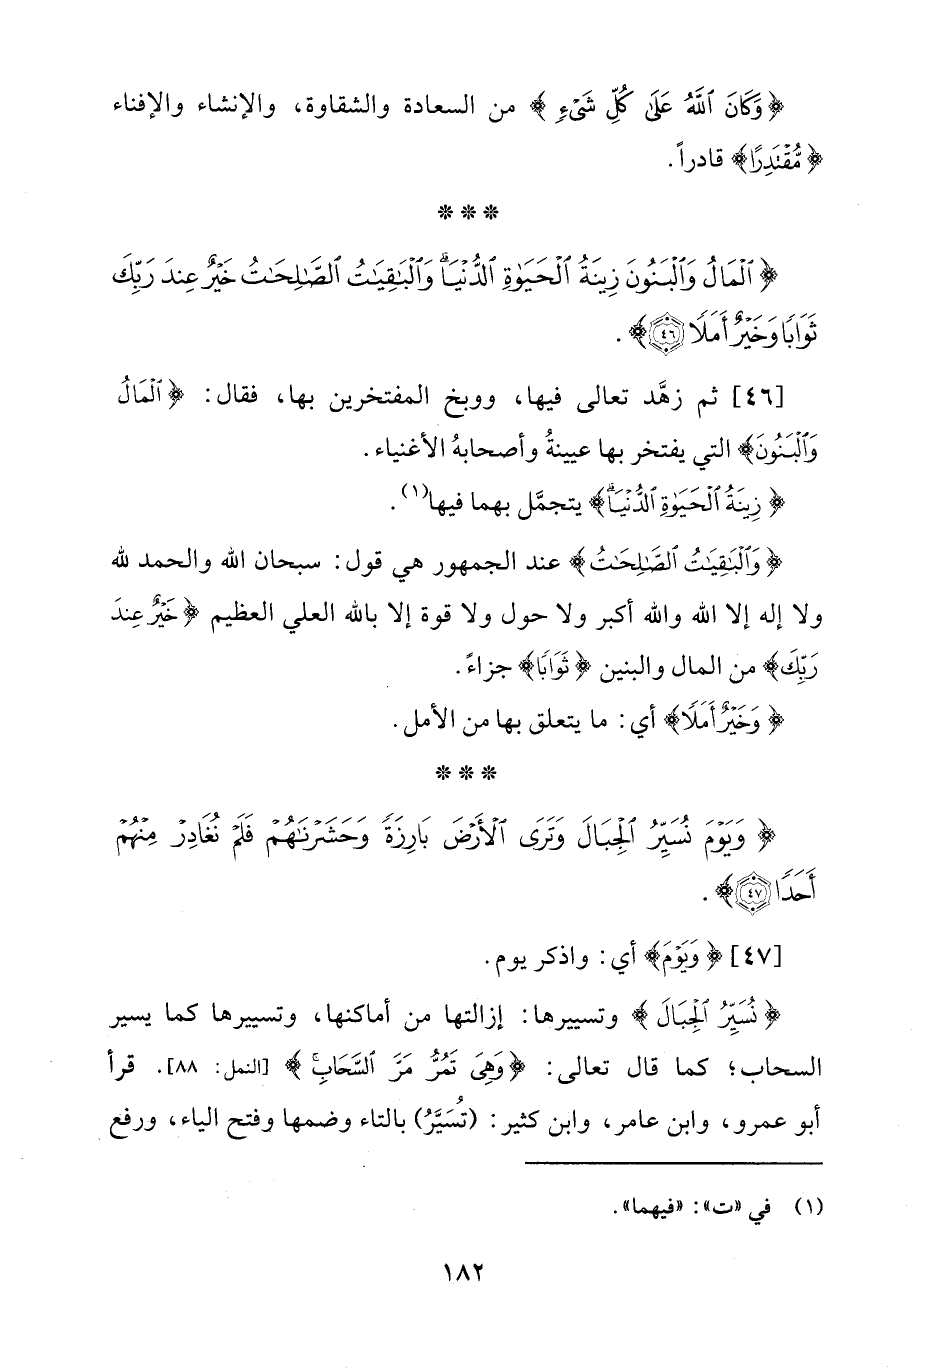 ﴿ وَكَانَ ٱللَّهُ عَلَىٰ كُلِّ شَىْءٍ ﴾ من السعادة والشقاوة، والإنشاء والإفناء
﴿ مُّقْتَدِرًا﴾ قادراً.
* * *
﴿ ٱلْمَالُ وَٱلْبَنُونَ زِينَةُ ٱلْحَيَوٰةِ ٱلدُّنْيَا ۖ وَٱلْبَـٰقِيَـٰتُ ٱلصَّـٰلِحَـٰتُ خَيْرٌ عِندَ رَبِّكَ
ثَوَابًا وَخَيْرٌ أَمَلًا ٤٦﴾ .
[٤٦] ثم زهَّد تعالى فيها، ووبخ المفتخرين بها، فقال: ﴿ ٱلْمَالُ
وَٱلْبَنُونَ﴾ التي يفتخر بها عيينةُ وأصحابهُ الأغنياء.
﴿ زِينَةُ ٱلْحَيَوٰةِ ٱلدُّنْيَا ۖ﴾ يتجمَّل بهما فيها(١).
﴿ وَٱلْبَـٰقِيَـٰتُ ٱلصَّـٰلِحَـٰتُ ﴾ عند الجمهور هي قول: سبحان الله والحمد لله
ولا إله إلا الله والله أكبر ولا حول ولا قوة إلا بالله العلي العظيم ﴿ خَيْرٌ عِندَ
رَبِّكَ﴾ من المال والبنين ﴿ ثَوَابًا﴾ جزاءً.
﴿ وَخَيْرٌ أَمَلًا﴾ أي: ما يتعلق بها من الأمل.
* * *
﴿ وَيَوْمَ نُسَيِّرُ ٱلْجِبَالَ وَتَرَى ٱلْأَرْضَ بَارِزَةً وَحَشَرْنَـٰهُمْ فَلَمْ نُغَادِرْ مِنْهُمْ
أَحَدًا ٤٧﴾ .
[٤٧] ﴿ وَيَوْمَ﴾ أي: واذكر يوم.
﴿ نُسَيِّرُ ٱلْجِبَالَ ﴾ وتسييرها: إزالتها من أماكنها، وتسييرها كما يسير
السحاب؛ كما قال تعالى: ﴿ وَهِىَ تَمُرُّ مَرَّ ٱلسَّحَابِ ۚ ﴾ [النمل: ٨٨]. قرأ
أبو عمرو، وابن عامر، وابن كثير: (تُسَيَّرُ) بالتاء وضمها وفتح الياء، ورفع
(١) في «ت»: «فيهما».
١٨٢